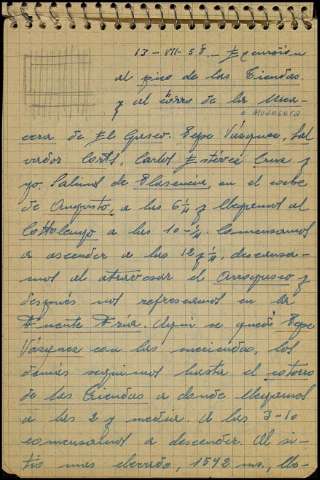 13-VII-58.- Excursión
al pico de las Tiendas
y al cerro de la
o Modorera
cera de El Gasco. Pepe Vázquez, Sal-
vador Cortés, Carlos y
yo. Salimos de Plasencia en el coche
de Augusto a las 6 ¼ y llegamos al
Cottolengo a las 10-¼. Comenzamos
a ascender a las 12 y ¼, descansa-
mos al atravesar el y
después nos refrescamos en la
Fuente Fría. Aquí se quedó Pepe
Vázquez con las meriendas, los
demás seguimos hasta el
de las Tiendas a donde llegamos
a las 2 y media. A las 3-10
comenzamos a descender. Al si-
tio mas elevado, 1592 ms., lle-